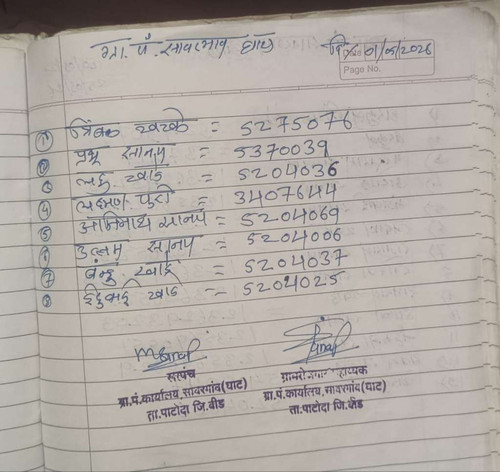 ग्रा. पं. सावरगाव घाट दि. 01/05/2026
Page No.
① त्रिंबक खरके = 5275076
② प्रभू सानप = 5370039
③ लहु खाडे = 5204036
④ लक्ष्मण पुरी = 3407644
⑤ आदिनाथ सानप = 5204069
⑥ उत्तम सानप = 5204006
⑦ बंडु खाडे = 5204037
⑧ खाडे = 5204025
सरपंच
ग्रा.पं.कार्यालय,सावरगांव(घाट)
ता.पाटोदा जि.बीड
ग्रामरोजगार सहाय्यक
ग्रा.पं.कार्यालय,सावरगांव(घाट)
ता.पाटोदा जि.बीड